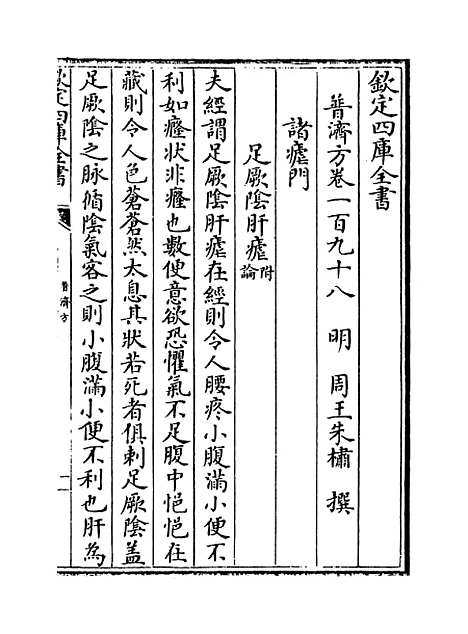 欽定四庫全書
普濟方卷一百九十八 明 周王朱橚 撰
諸瘧門
足厥陰肝瘧附論
夫經謂足厥陰肝瘧在經則令人腰疼小腹滿小便不
利如癃狀非癃也數便意欲恐懼氣不足腹中悒悒在
藏則令人色蒼蒼然太息其狀若死者俱刺足厥陰蓋
足厥陰之脉循陰氣客之則小腹滿小便不利也肝為
欽定四庫全書
普濟方